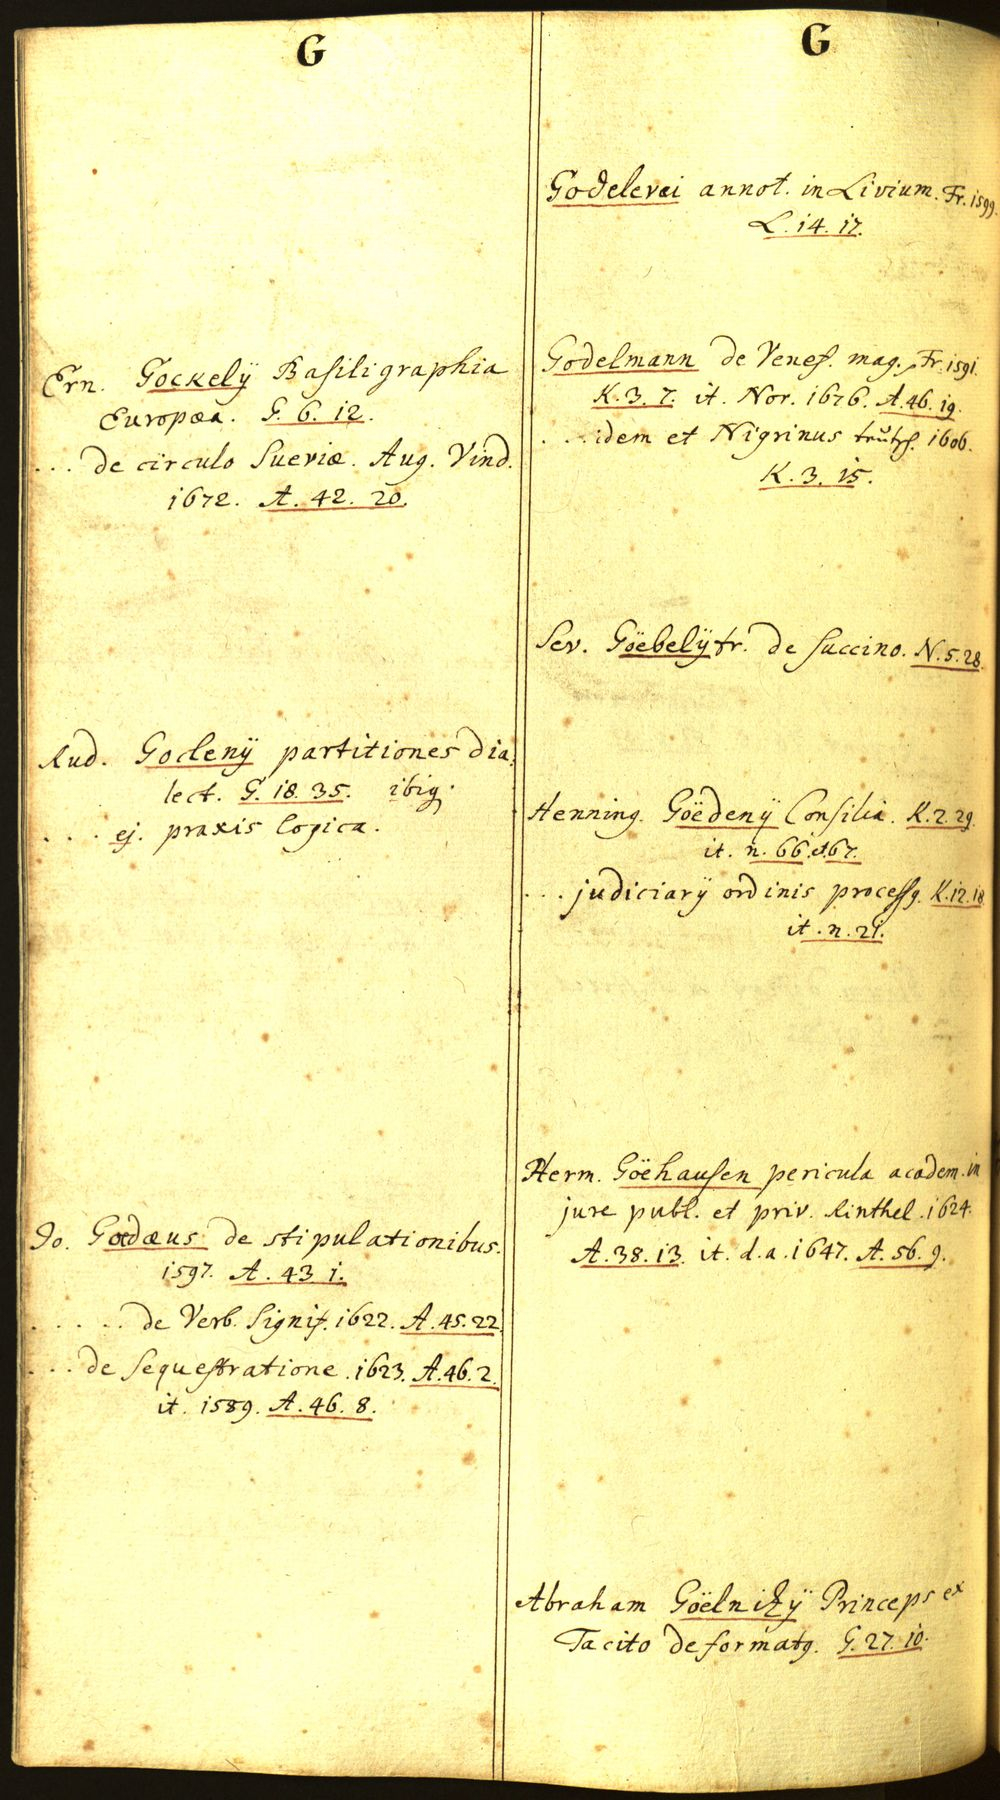 G
Ern. Gockelÿ Basiligraphia
Europæa. G. 6. 12.
... de circulo Sueviæ. Aug. Vind.
1672. A. 42. 20.
Rud. Goclenÿ partitiones dia,
lect. G. 18. 35. ibiq.
.... ej. praxis logica.
Jo. Goedæus de stipulationibus.
1597. A. 43 1.
..... de Verb. Signif. 1622. A. 45. 22.
... de Sequestratione. 1623. A. 46. 2.
it. 1589. A. 46. 8.
G
Godelevæi annot. in Livium. Fr. 1599.
L. 14. 17.
Godelmann de Venef. mag. Fr. 1591.
K. 3. 7. it. Nor. 1676. A. 46. 19.
... idem et Nigrinus 1606.
K. 3. 15.
Sev. Göebelÿ tr. de Succino. N. 5. 28.
Henning. Göedenÿ Consilia. K. 2. 29.
it. n. 66. et 67.
... judiciarÿ ordinis process9. K. 12. 18.
it. n. 21.
Herm. Göehausen pericula academ. in
jure publ. et priv. Rinthel. 1624.
A. 38. 13. it. d. a. 1647. A. 56. 9.
Abraham Göelnitzÿ Princeps ex
Tacito deformat9. G. 27. 10.